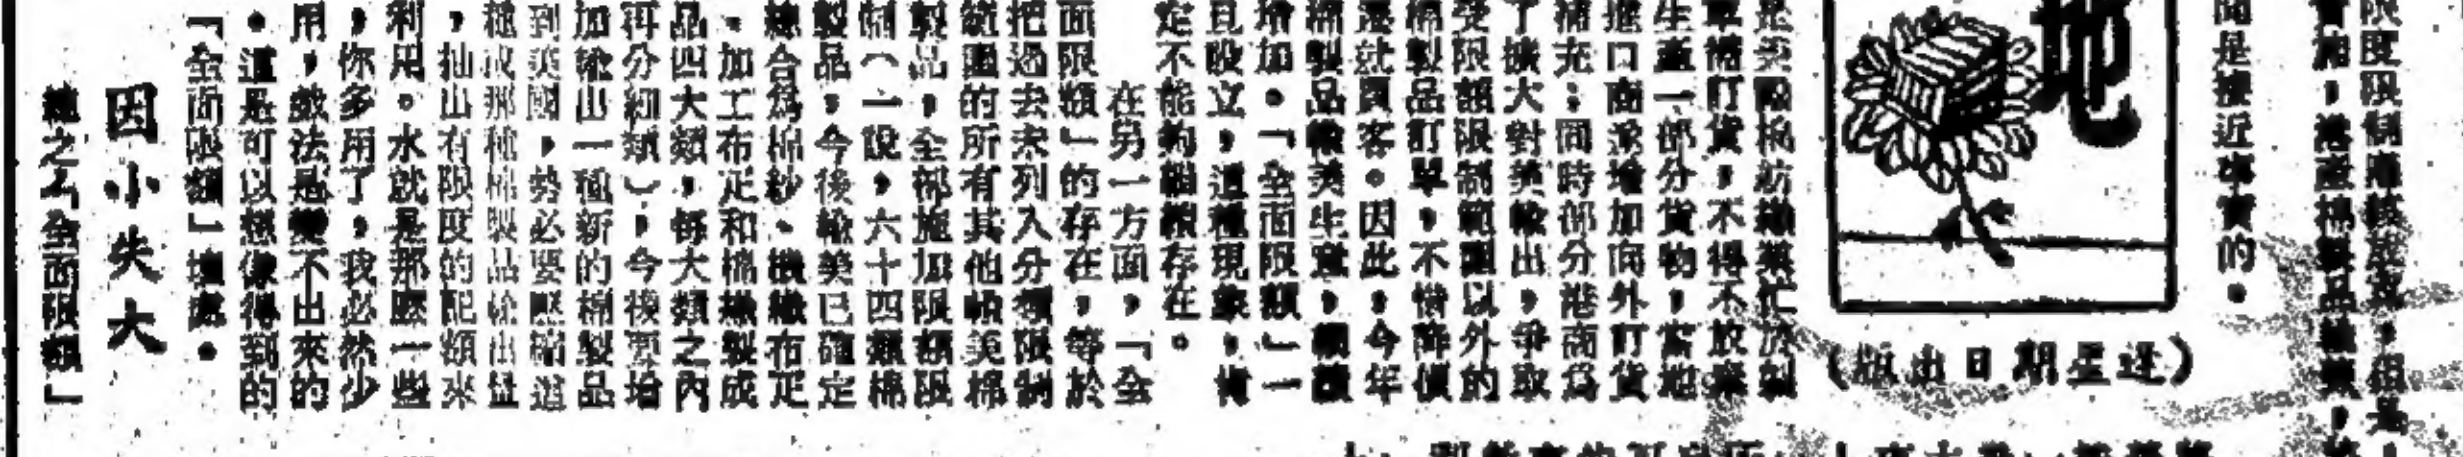 限度限制
曾加，港產棉製品
聞是接近事實的。
地
（逢星期日出版）
是美
軍備訂貨，不得不放棄
生產一部分貨物，當地
進口商遂增加向外訂貨
補充；同時部分港商為
了擴大對美輸出，爭取
受限額限制範圍以外的
棉製品訂單，不惜降價
遷就買客。因此，今年
棉製品輸美生意，繼續
增加。「全面限額」一
且設立，這種現象，肯
定不能夠繼續存在。
在另一方面，「全
面限額」的存在，等於
把過去未列入分類限制
範圍的所有其他輸美棉
製品，全部施加限額限
制（一說，六十四類棉
製品，今後輸美已確定
綜合為棉紗、機織布疋
、加工布疋和棉織製成
品四大類，每大類之內
再分細類），今後要增
加輸出一種新的棉製品
到美國，勢必要壓縮這
種或那種棉製品輸出量
，抽出有限度的配額來
利用。水就是那麼一些
，你多用了，我必然少
用，戲法是變不出來的
。這是可以想像得到的
「全面限額」壞處。
因小失大
總之，「全面限額」